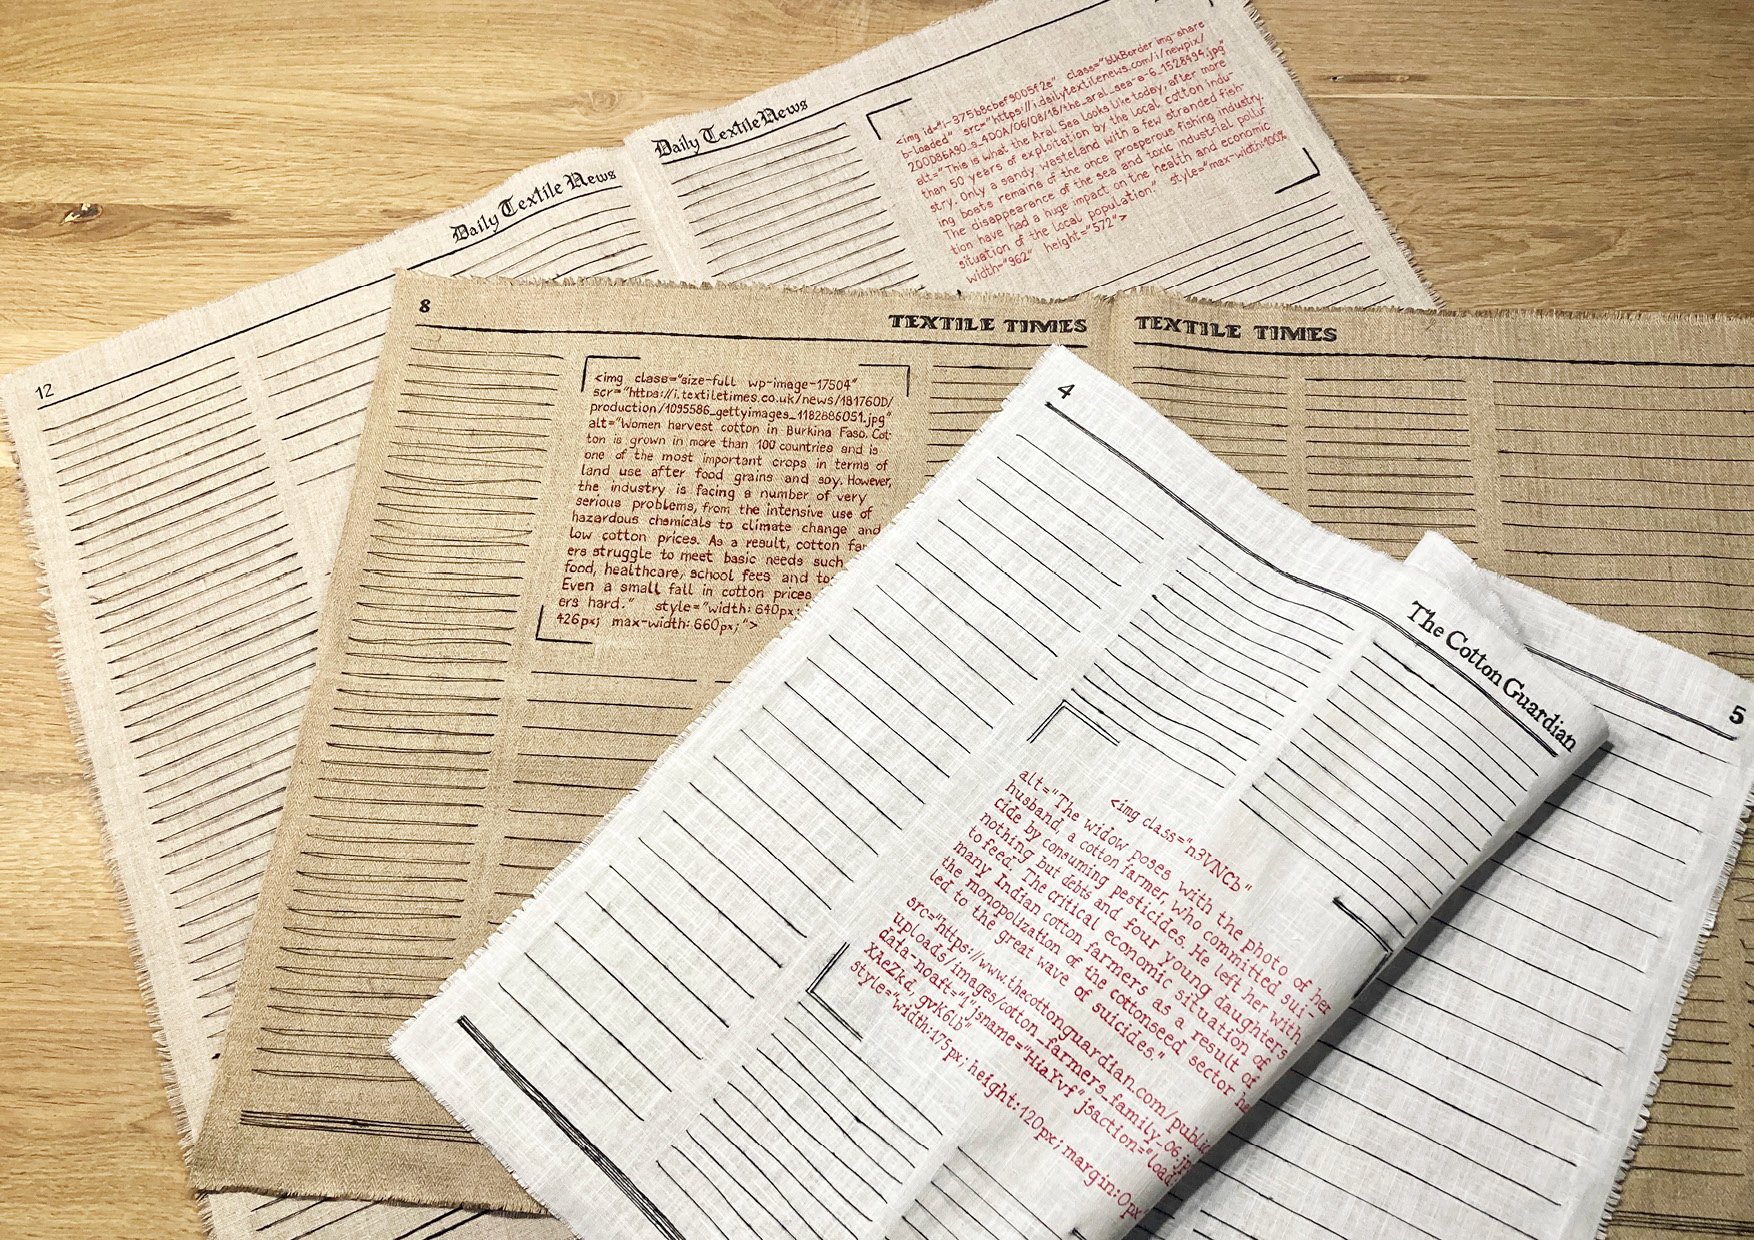 Daily Textile News
<img id="i-375b8cbef9005f2e" class="blkBorder img-share
b-loaded" src="https://i.dailytextilenews.com/i/newpix/
200D86A90_s_4D0A/06/08/18/the_aral_sea-a-6_1528994.jpg"
alt="This is what the Aral Sea Looks like today, after more
than 50 years of exploitation by the local cotton indu-
stry. Only a sandy wasteland with a few stranded fish-
ing boats remains of the once prosperous fishing industry.
The disappearance of the sea and toxic industrial pollu-
tion have had a huge impact on the health and economic
situation of the local population." style="max-width:100%
width="962" height="572">
Daily Textile News
12
8
TEXTILE TIMES
TEXTILE TIMES
<img class="size-full wp-image-17504"
scr="https://i.textiletimes.co.uk/news/181760D/
production/1095586_gettyimages_1182886051.jpg"
alt="Women harvest cotton in Burkina Faso. Cot-
ton is grown in more than 100 countries and is
one of the most important crops in terms of
land use after food grains and soy. However,
the industry is facing a number of very
serious problems, from the intensive use of
hazardous chemicals to climate change and
low cotton prices. As a result, cotton far
ers struggle to meet basic needs such
food, healthcare, school fees and to
Even a small fall in cotton prices
ers hard." style="width: 640px;
426px; max-width: 660px;">
4
The Cotton Guardian
5
<img class="n3VNCb"
alt="The widow poses with the photo of her
husband, a cotton farmer, who committed sui-
cide by consuming pesticides. He left her with
nothing but debts and four young daughters
to feed. The critical economic situation of
many Indian cotton farmers as a result of
the monopolization of the cottonseed sector ha
led to the great wave of suicides."
src="https://www.thecottonguardian.com/public
uploads/images/cotton_farmers_family_06.jp
data-noaft="1" jsname="HiaYvf" jsaction="load
XAeZkd, gvK6lb"
style="width:175px; height:120px; margin:0px